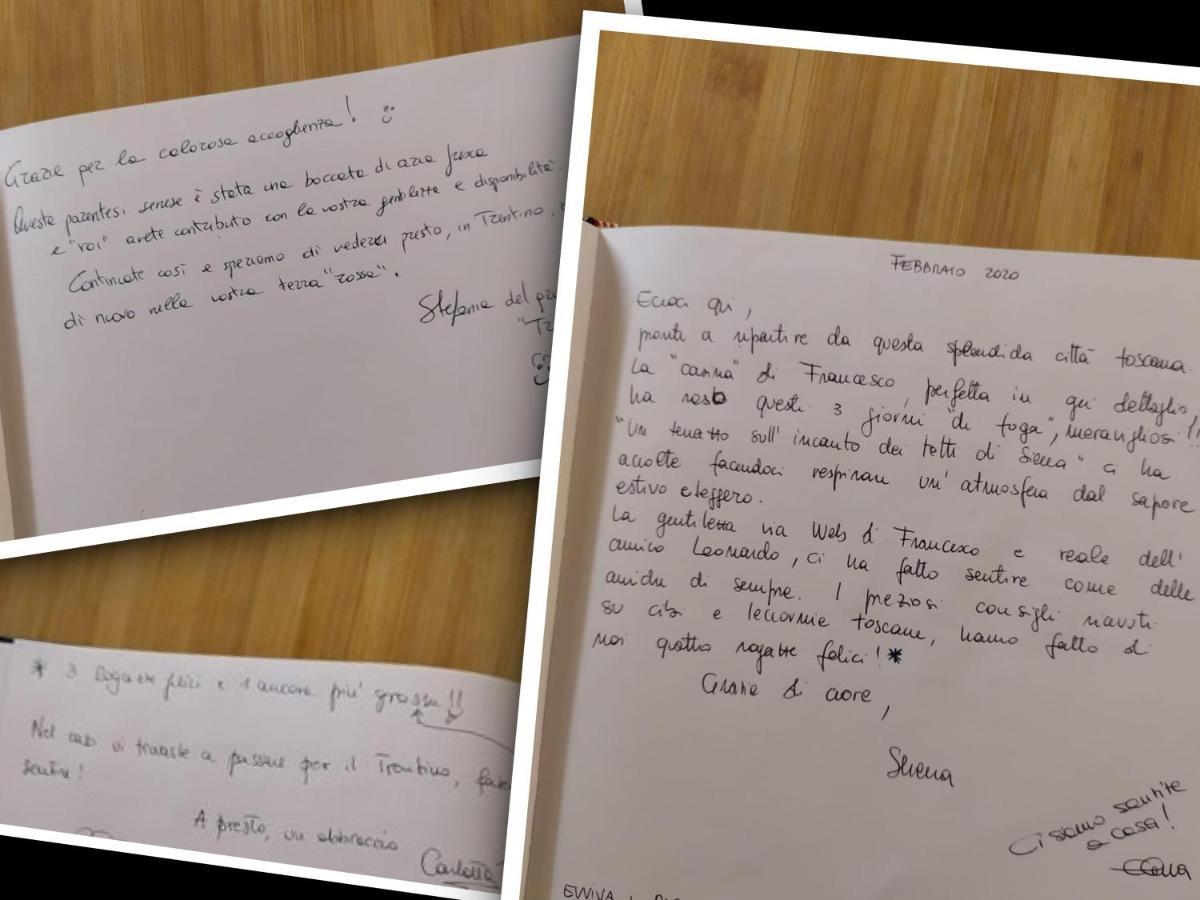 Grazie per la calorosa accoglienza!
Questa parentesi senese è stata una boccata di aria fresca
e "voi" avete contribuito con la vostra gentilezza e disponibilità.
Continuate così e speriamo di vederci presto, in Trentino,
di nuovo nella vostra terra "rossa".
Stefania del
* 3 Ragazze felici e 1 ancora più grossa!!
Nel caso vi troviate a passare per il Trentino,
sentire!
A presto, un abbraccio
Carlotta
FEBBRAIO 2020
Eccoci qui,
pronte a ripartire da questa splendida città toscana.
La "casina" di Francesco, perfetta in ogni dettaglio,
ha reso questi 3 giorni "di foga", meravigliosi!!
"Un terrazzo sull'incanto dei tetti di Siena" ci ha
accolte facendoci respirare un'atmosfera dal sapore
estivo e leggero.
La gentilezza via Web di Francesco e reale dell'
amico Leonardo, ci ha fatto sentire come delle
amiche di sempre. I preziosi consigli ricevuti
su cibi e leccornie toscane, hanno fatto di
noi quattro ragazze felici! *
Grazie di cuore,
Serena
Ci siamo sentite
a casa!
EVVIVA